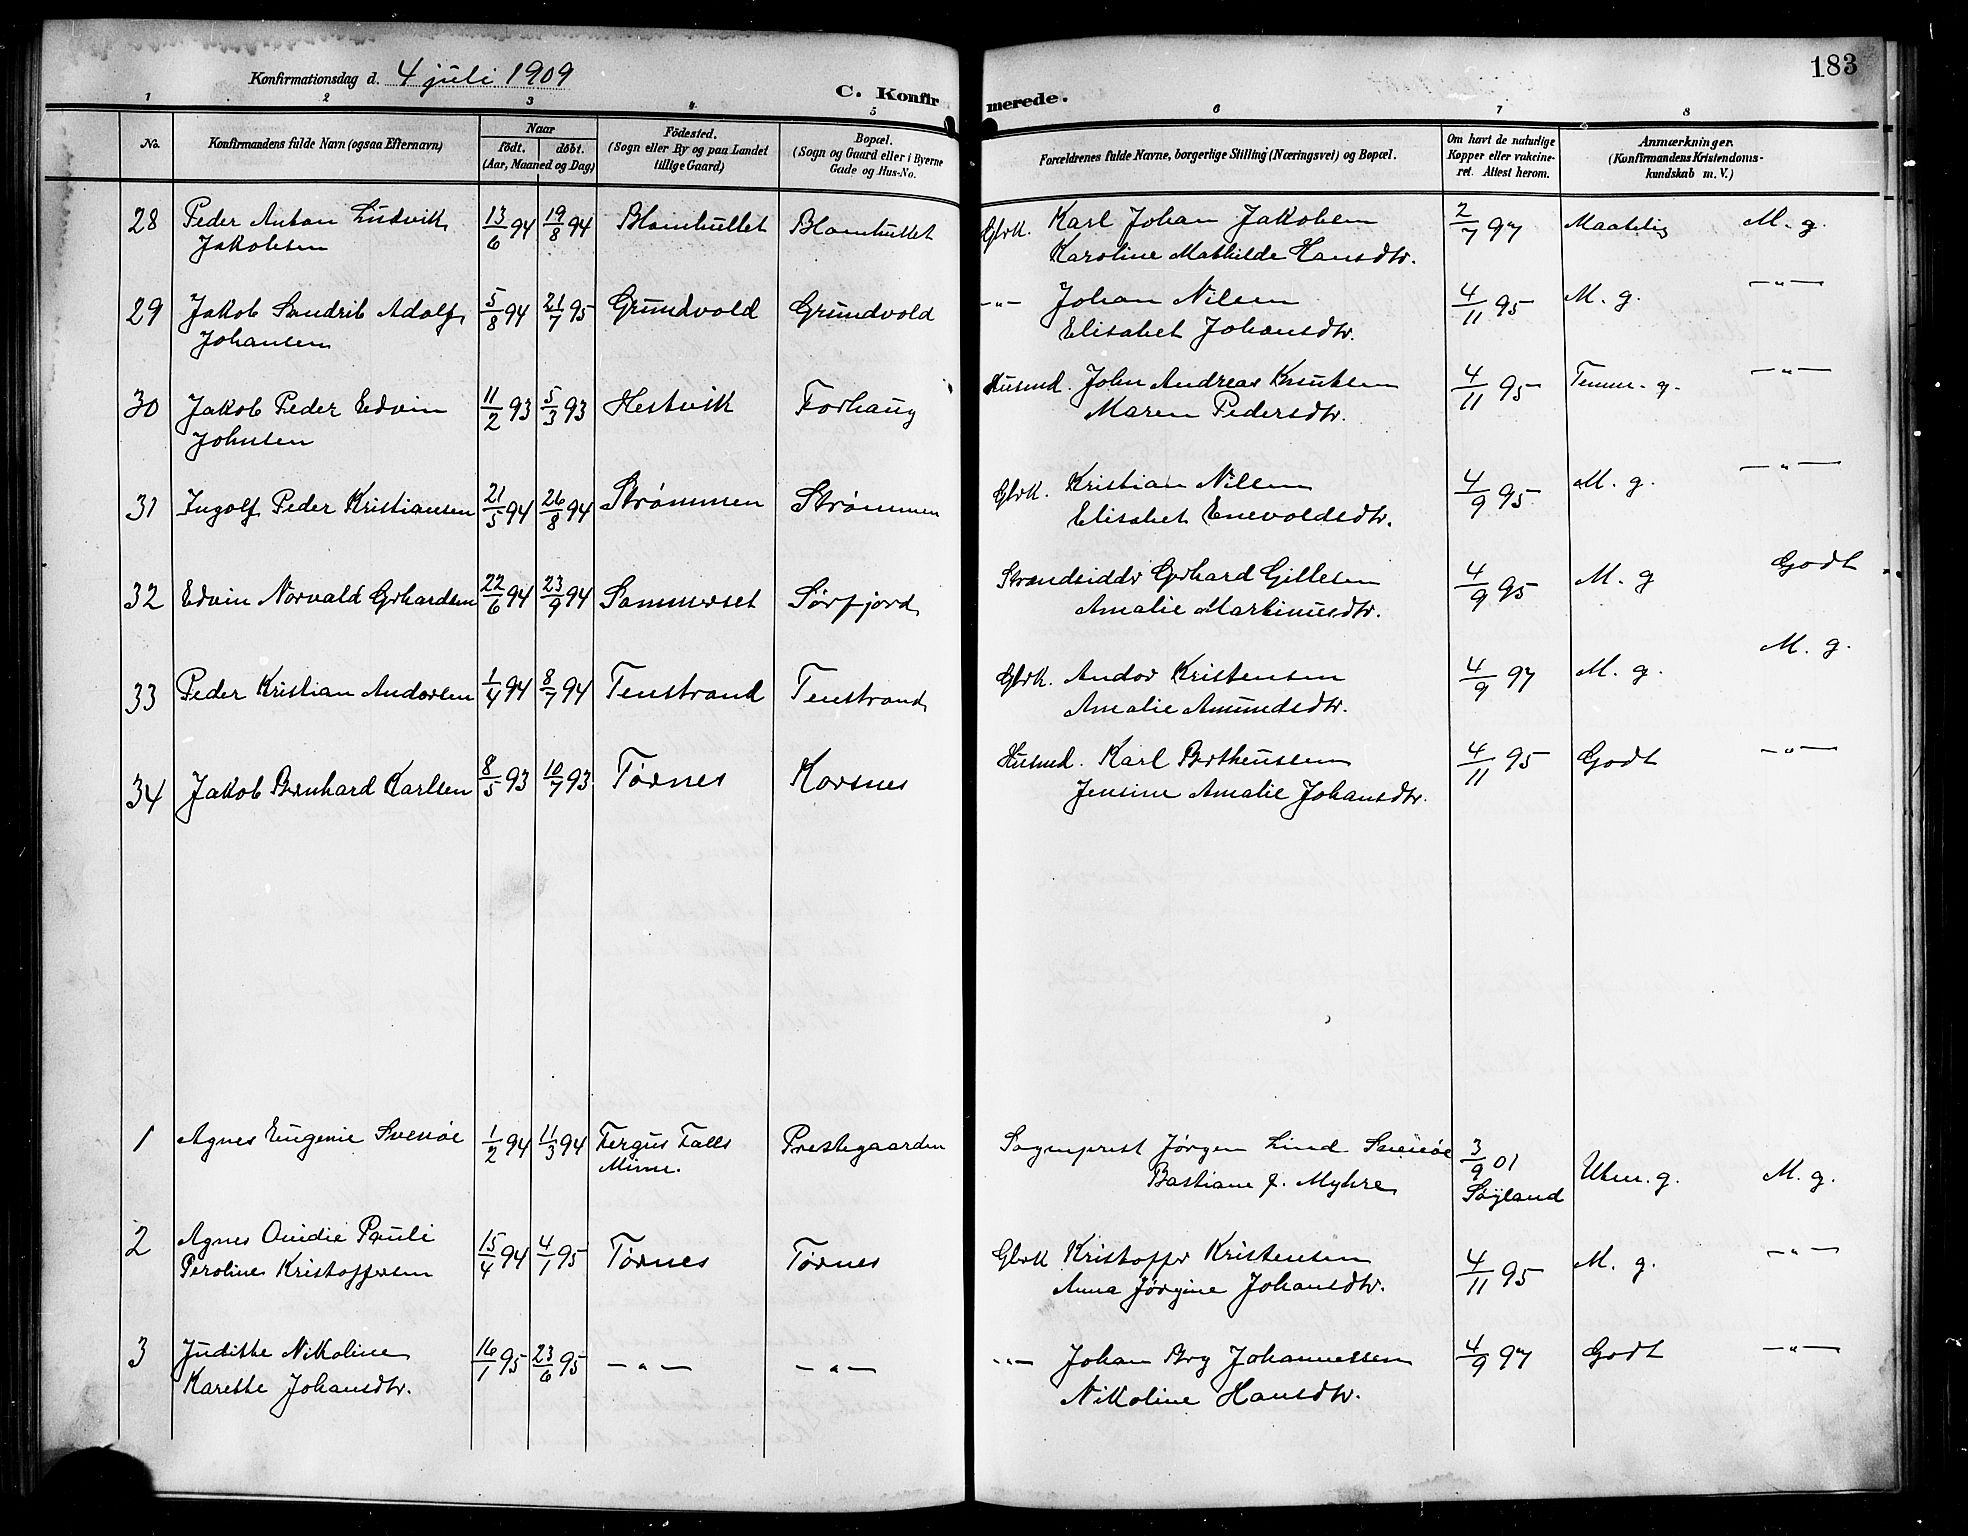 183
Konfirmationsdag d. 4 juli 1909
C. Konfirmerede.
1 2 3 4 5 6 7 8
No. Konfirmandens fulde Navn (ogsaa Efternavn) Naar født. døbt. (Aar, Maaned og Dag) Fødested. (Sogn eller By og paa Landet tillige Gaard) Bopæl. (Sogn og Gaard eller i Byerne Gade og Hus-No. Forældrenes fulde Navne, borgerlige Stilling (Næringsvei) og Bopæl. Om havt de naturlige Kopper eller vakcineret. Attest herom. Anmærkninger. (Konfirmandens Kristendomskundskab m. V.)
28 Peder Anton Ludvik 13/6 94 19/8 94 Gbrk. Karl Johan Jakobsen 2/7 97 Maatelig M. g.
Jakobsen Karoline Mathilde Hansdtr.
29 Jakob Sendrik Adolf 5/8 94 21/7 95 Grundvold Grundvold -"- Johan Nilsen 4/11 95 M. g. -"-
Johansen Elisabet Johansdtr.
30 Jakob Peder Edvin 11/2 93 5/3 93 Hestvik Forhaug Husmd. John Andreas Knutsen 4/11 95 Temm. g. -"-
Johnsen Maren Pedersdtr.
31 Ingolf Peder Kristiansen 21/5 94 26/8 94 Strømmen Strømmen Gbrk. Kristian Nilsen 4/9 95 M. g. -"-
Elisabet Enevoldsdtr.
32 Edvin Norvald Gerhardsen 22/6 94 23/9 94 Sommerset Sørfjord Strandsidder Gerhard Gillesen 4/9 95 M. g Godt
Amalie Martinusdtr.
33 Peder Kristian Andorsen 1/4 94 8/7 94 Tenstrand Tenstrand Gbrk. Andor Kristensen 4/9 97 M. g. M. g.
Amalie Amundsdtr.
34 Jakob Bernhard Karlsen 8/5 93 10/7 93 Tørnes Korsnes Husmd. Karl Bertheussen 4/11 95 Godt -"-
Jensine Amalie Johansdtr.
1 Agnes Eugenie Svenøe 1/2 94 11/3 94 Fergus Falls Prestegaarden Sogneprest Jørgen Lind 3/9 01 Uten. g. M. g.
Minn. Bastiane f. Myhre Søyland
2 Agnes Ovidie Pauli 15/4 94 4/1 95 Tørnes Tørnes Gbrk Kristoffer Kristensen 4/11 95 M. g. -"-
Peroline Kristoffersen Anna Jørgine Johansdtr.
3 Judithe Nikoline 16/1 95 23/6 95 -"- -"- -"- Johan Berg Johannessen 4/9 97 Godt -"-
Karette Johansdtr. Nikoline Hansdtr.